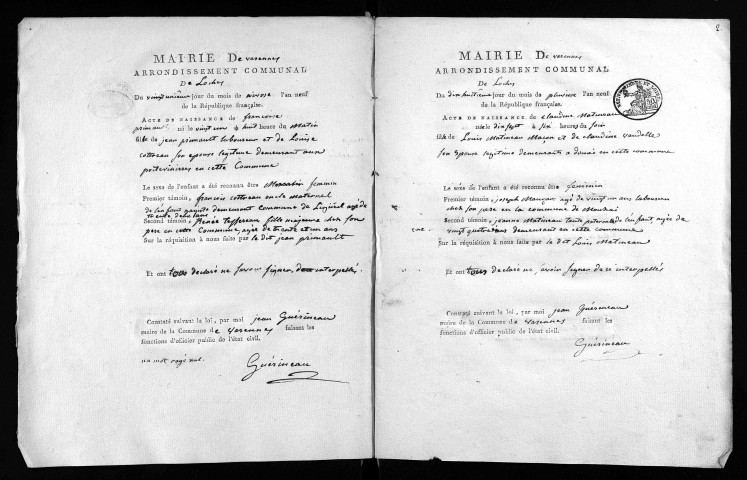 MAIRIE De varennes
ARRONDISSEMENT COMMUNAL
De Loches
Du vingt unieme jour du mois de nivose l'an neuf
de la République française.
ACTE DE NAISSANCE de francoise
primault né le vingt un à huit heure du Matin
fille de jean primault laboureur et de Louise
cottereau son epouse legitime demeurant aux
poitevinieres en cette Commune
Le sexe de l'enfant a été reconnu être feminin
Premier témoin, francois cottereau oncle Maternel
de lenfant demeurant Commune de Ligueil agé de
trente deux ans
Second témoin, Renée fille majeure ches son
pere en cette Commune agée de trente et un ans
Sur la réquisition à nous faite par le dit jean primault
Et ont tous declaré ne savoir signer de ce interpellés.
Constaté suivant la loi, par moi jean Guérineau
maire de la Commune de varennes faisant les
fonctions d'officier public de l'état civil.
un mot rayé nul.
Guérineau
2
MAIRIE De varennes
ARRONDISSEMENT COMMUNAL
De Loches
Du dix huitieme jour du mois de pluviose l'an neuf
de la République française.
ACTE DE NAISSANCE de claudine Matineau
née le dix sept à six heures du soir
fille de Louis Matineau Maçon et de claudine
son epouse legitime demeurants a en cette commune
Le sexe de l'enfant a été reconnu être feminin
Premier témoin, joseph agé de vingt un ans laboureur
ches son pere en la commune de
Second témoin, jeanne Matineau tante paternelle de lenfant, agée de
vingt quatre ans demeurant en cette commune
Sur la réquisition à nous faite par le dit Louis Matineau
Et ont tous declaré ne savoir signer de ce interpellés
Constaté suivant la loi, par moi jean Guérineau
maire de la Commune de varennes faisant les
fonctions d'officier public de l'état civil.
Guérineau